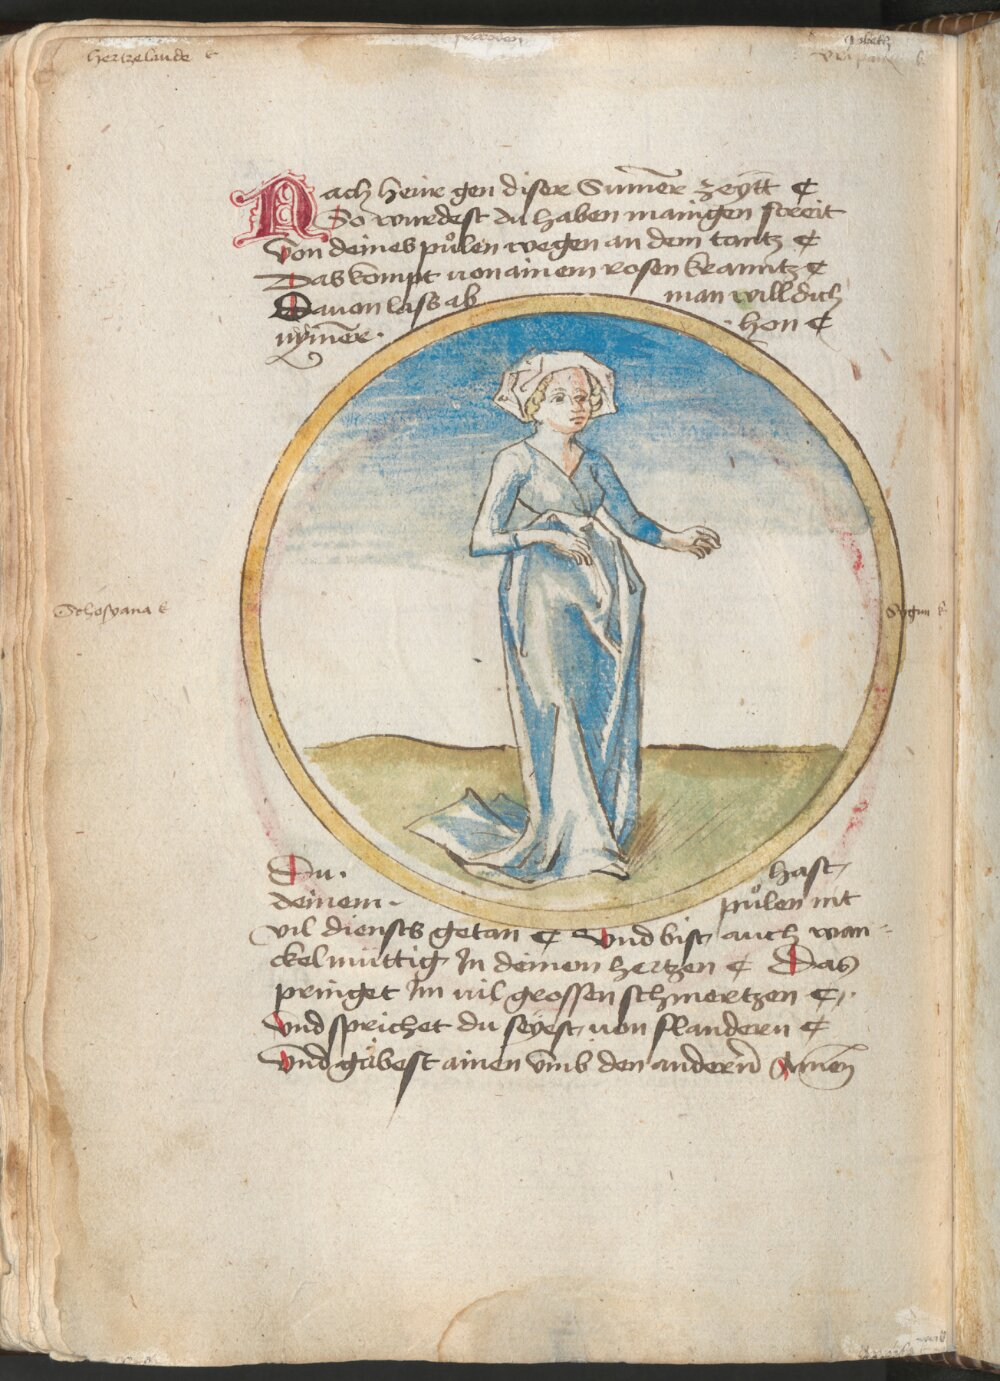 hertzelaude
Nach heür gen diser Sum̄er zeÿtt
So wurdest du haben mainigen streit
Von deines puͦlen wegen an dem tantz
Das kompt von ainem rosen kranntz
Dauon lass ab man will dich
nÿm̄er · hon
Schosyana
Sygun
Du · hast
deinem · puͦlen nit
vil diensts getan Vnd bist auch wan-
ckelmüttig In deinen hertzen Das
pringet Im vil grossen schmertzen
Vnd sprichet du seyest von flandern
Vnd gäbest ainen vmb den andern̄ Amen